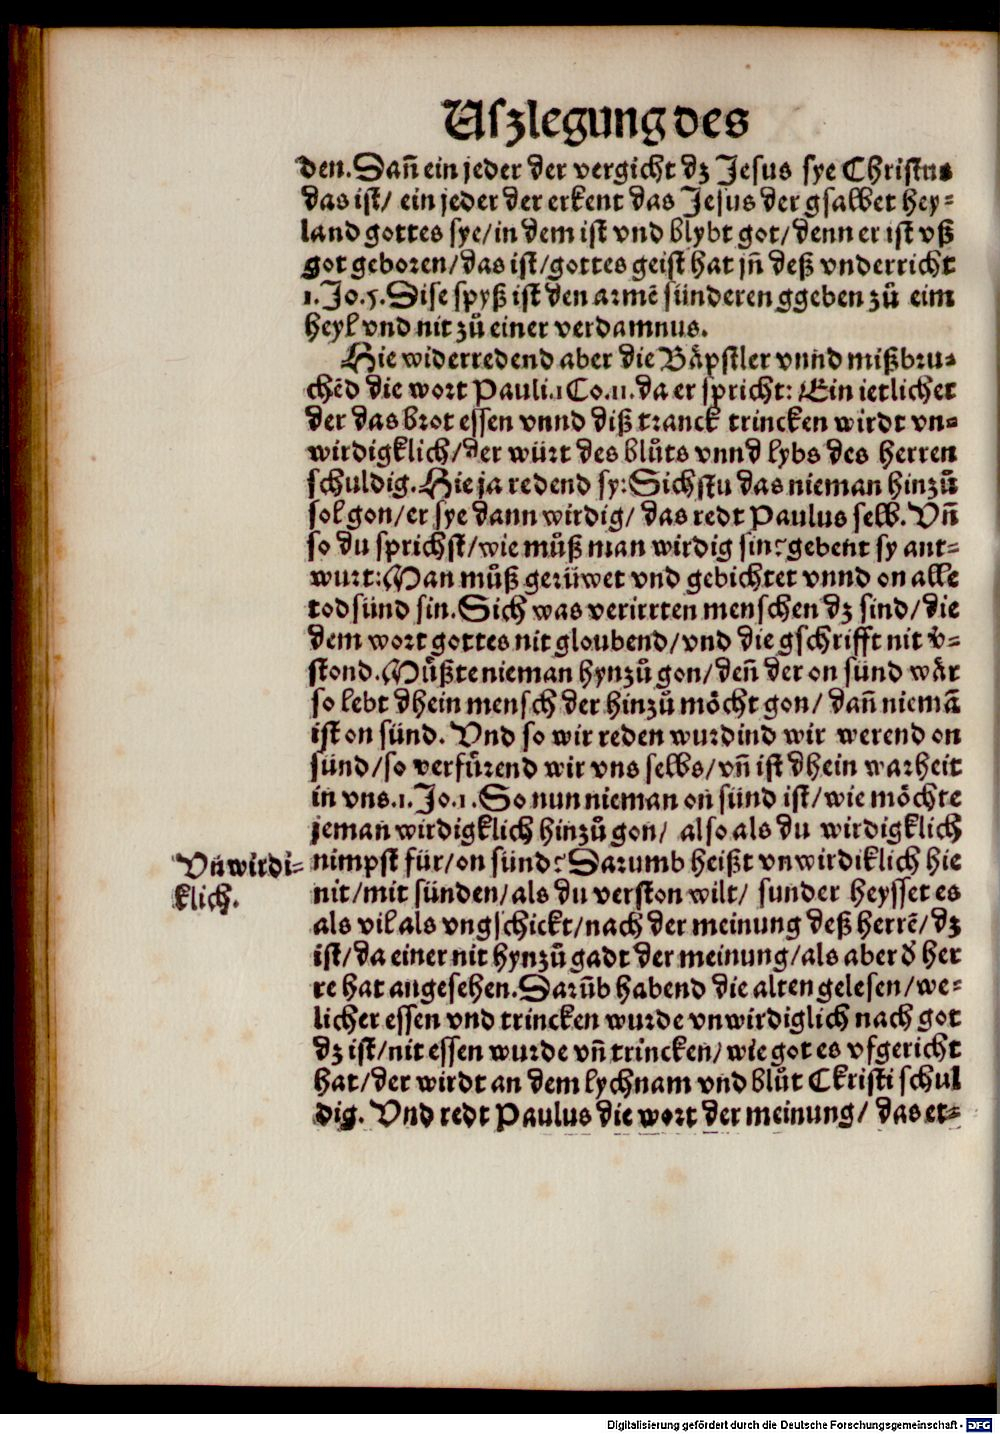 Uszlegung des
den. Dañ ein jeder der vergicht dz Jesus sye Christus
das ist/ ein jeder der erkent das Jesus der gsalbet hey-
land gottes sye/in dem ist vnd blybt got/denn er ist vß
got geboren/das ist/gottes geist hat jñ deß vnderricht
1. Jo. 5. Dise spyß ist den armē sünderen ggeben zů eim
heyl vnd nit zů einer verdamnus.
Hie widerredend aber die Bäpstler vnnd mißbru-
chēd die wort Pauli.1 Co.11.da er spricht: Ein ietlicher
der das brot essen vnnd diß tranck trincken wirdt vn-
wirdigklich/der würt des blůts vnnd lybs des herren
schuldig. Hie ja redend sy: Sichstu das nieman hinzů
sol gon/er sye dann wirdig/ das redt Paulus selb. Vñ
so du sprichst/wie můß man wirdig sin? gebent sy ant-
wurt: Man můß gerüwet vnd gebichtet vnnd on alle
todsünd sin. Sich was verirrten menschen dz sind/die
dem wort gottes nit gloubend/vnd die gschrifft nit v̄-
stond. Můßte nieman hynzů gon/deñ der on sünd wär
so lebt dhein mensch der hinzů möcht gon/ dañ niemā
ist on sünd. Vnd so wir reden wurdind wir werend on
sünd/so verfürend wir vns selbs/vñ ist dhein warheit
in vns.1. Jo.1. So nun nieman on sünd ist/wie möchte
jeman wirdigklich hinzů gon/ also als du wirdigklich
Vnwirdi-
klich.
nimpst für/on sünd? Darumb heißt vnwirdiklich hie
nit/mit sünden/als du verston wilt/ sunder heysset es
als vil als vngschickt/nach der meinung deß herrē/dz
ist/da einer nit hynzů gadt der meinung/als aber d̄ her
re hat angesehen. Darūb habend die alten gelesen/we-
licher essen vnd trincken wurde vnwirdiglich nach got
dz ist/nit essen wurde vñ trincken/wie got es vfgericht
hat/der wirdt an dem lychnam vnd blůt Ckristi schul
dig. Vnd redt Paulus die wort der meinung/ das et-
Digitalisierung gefördert durch die Deutsche Forschungsgemeinschaft - DFG